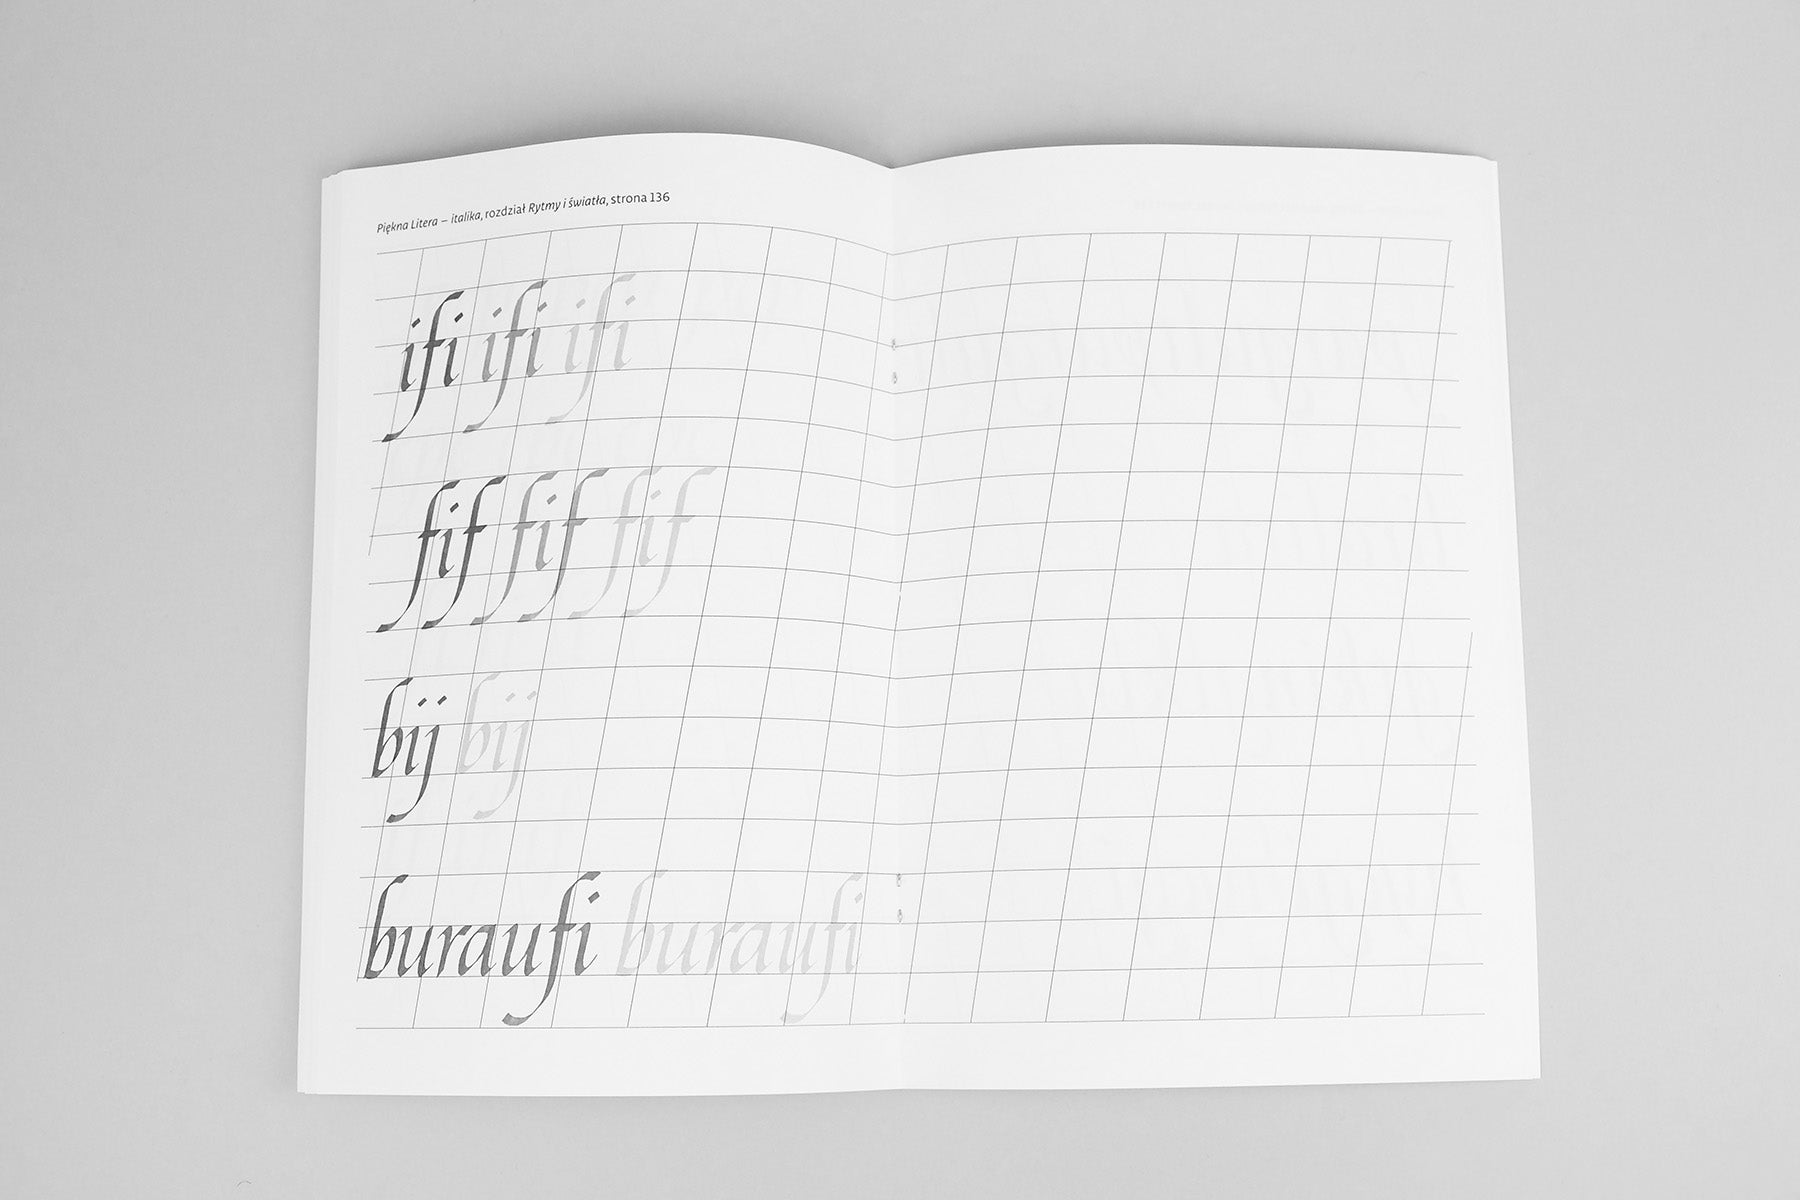 Piękna Litera – italika, rozdział Rytmy i światła, strona 136
ifi ifi ifi
fif fif fif
bij bij
buraufi buraufi